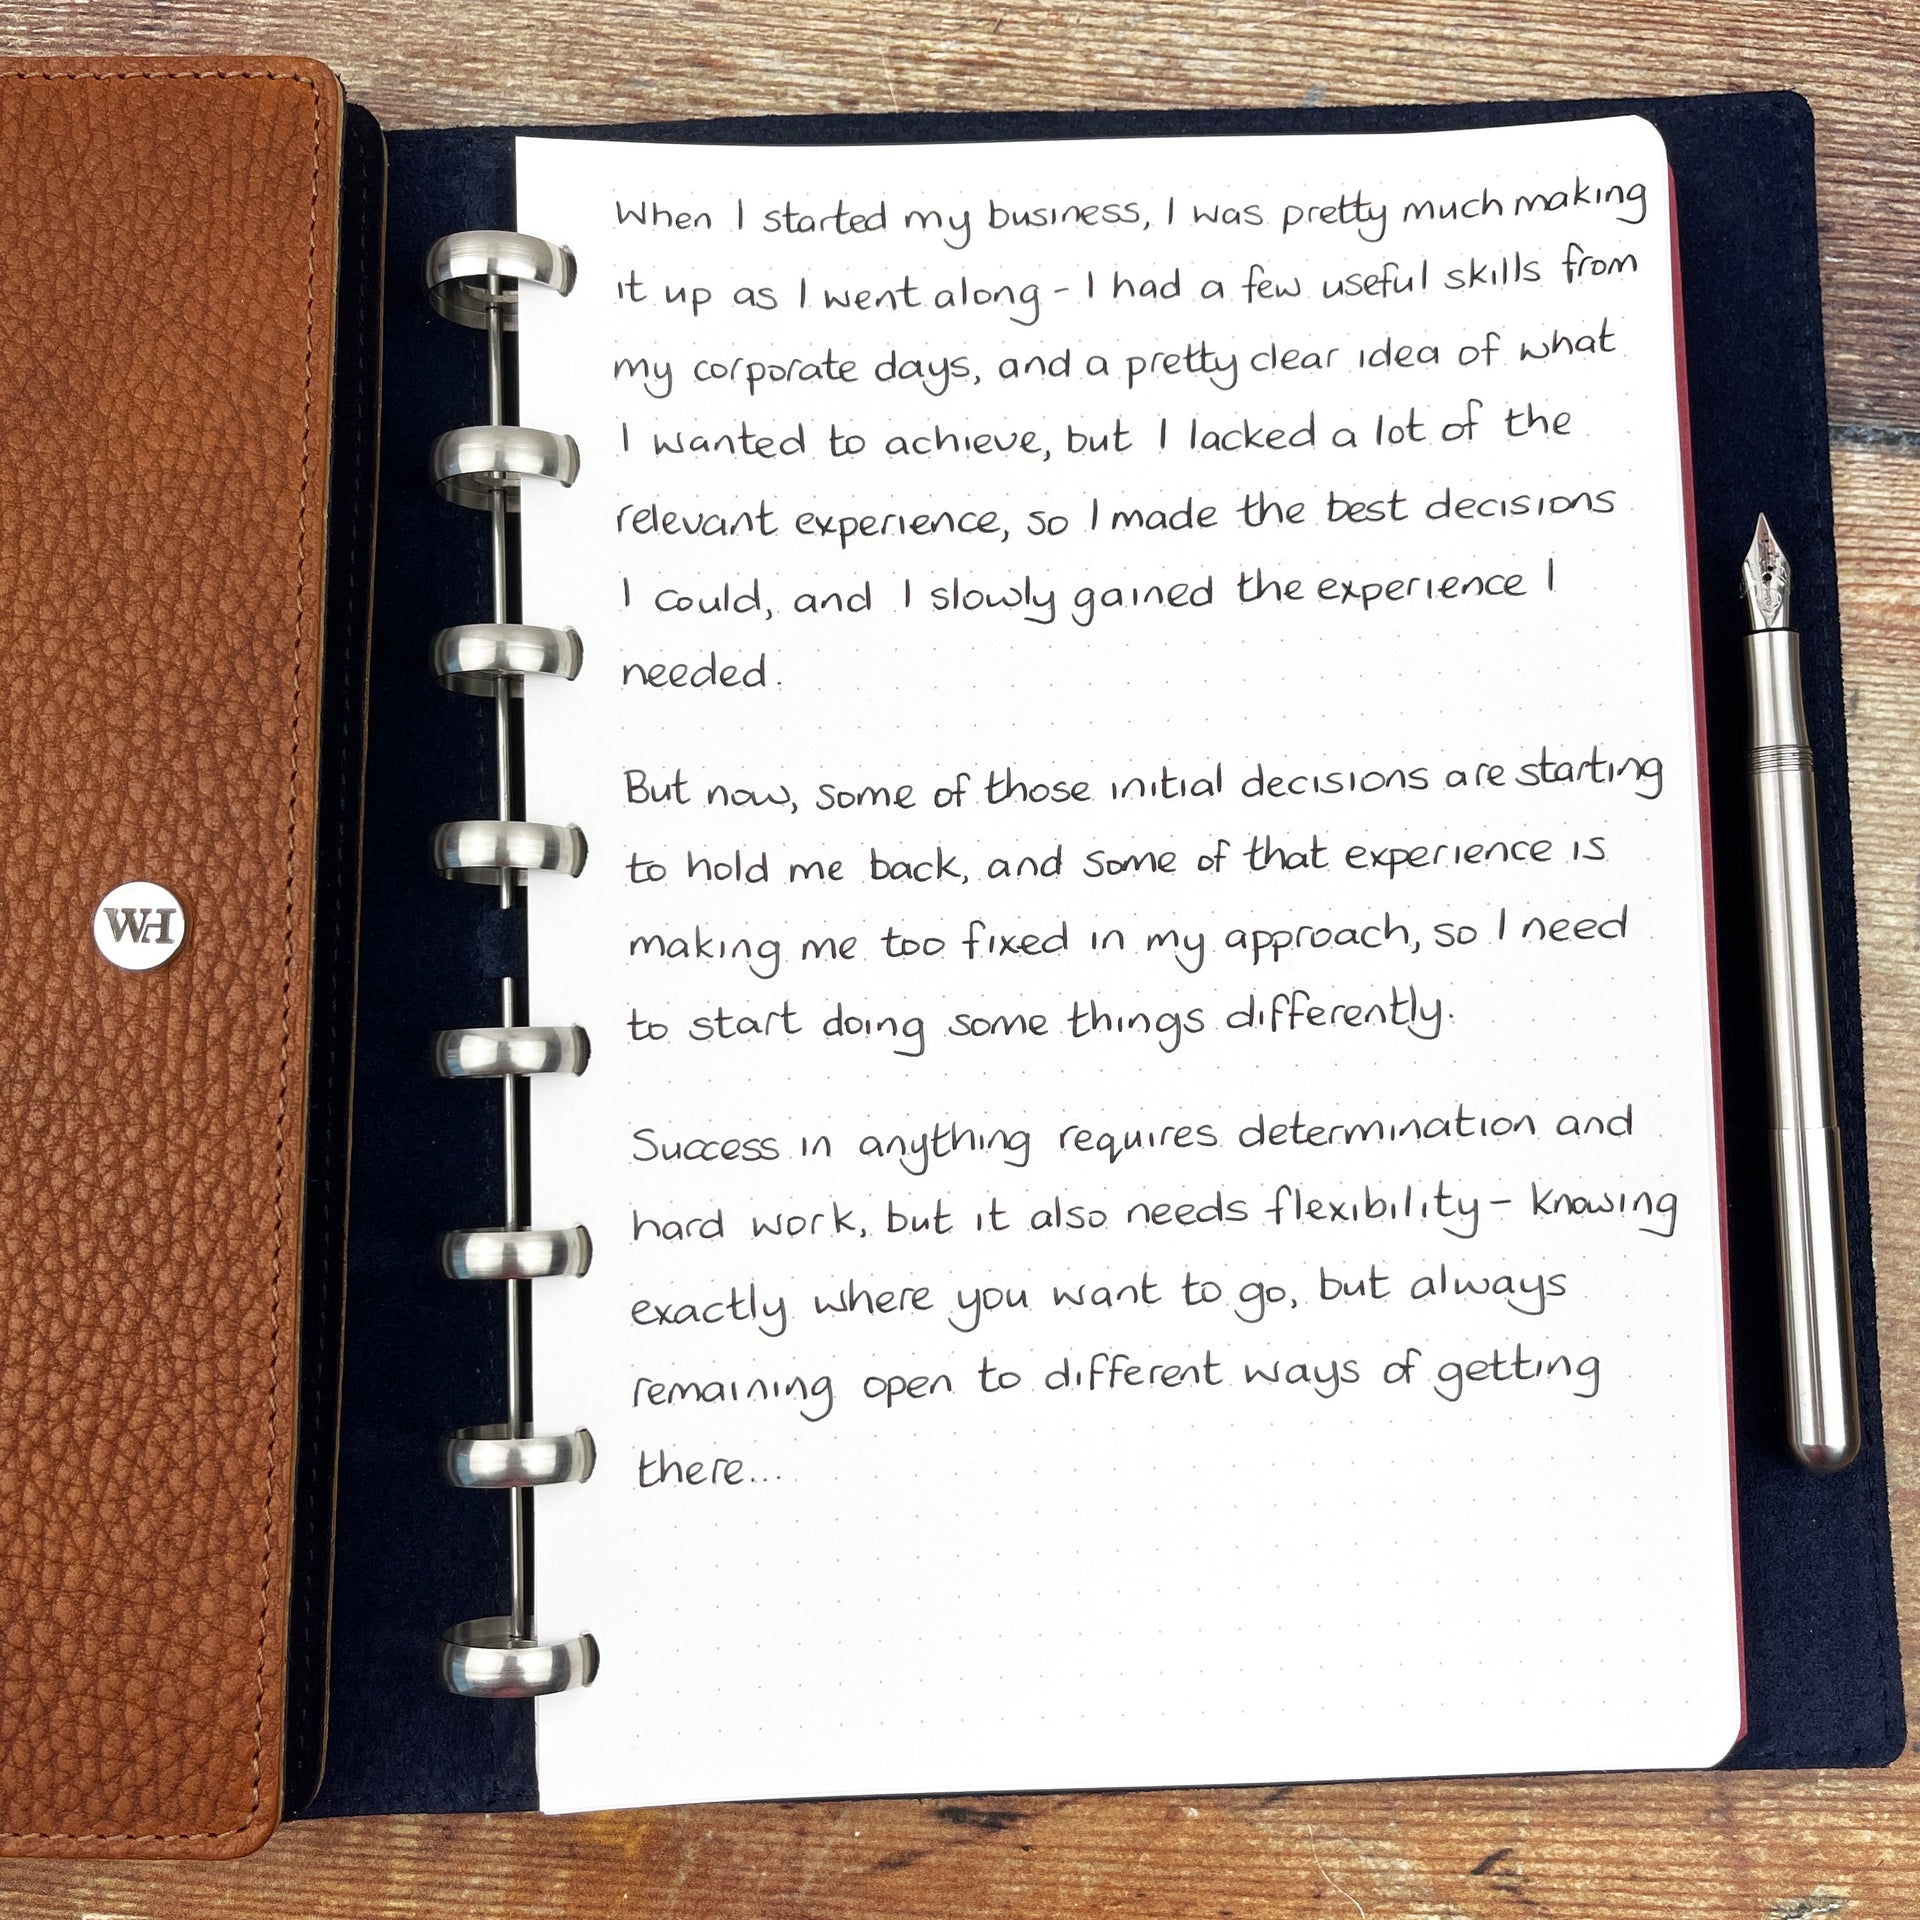 When I started my business, I was pretty much making
it up as I went along - I had a few useful skills from
my corporate days, and a pretty clear idea of what
I wanted to achieve, but I lacked a lot of the
relevant experience, so I made the best decisions
I could, and I slowly gained the experience I
needed.
But now, some of those initial decisions are starting
to hold me back, and some of that experience is
making me too fixed in my approach, so I need
to start doing some things differently.
Success in anything requires determination and
hard work, but it also needs flexibility - knowing
exactly where you want to go, but always
remaining open to different ways of getting
there...
WH